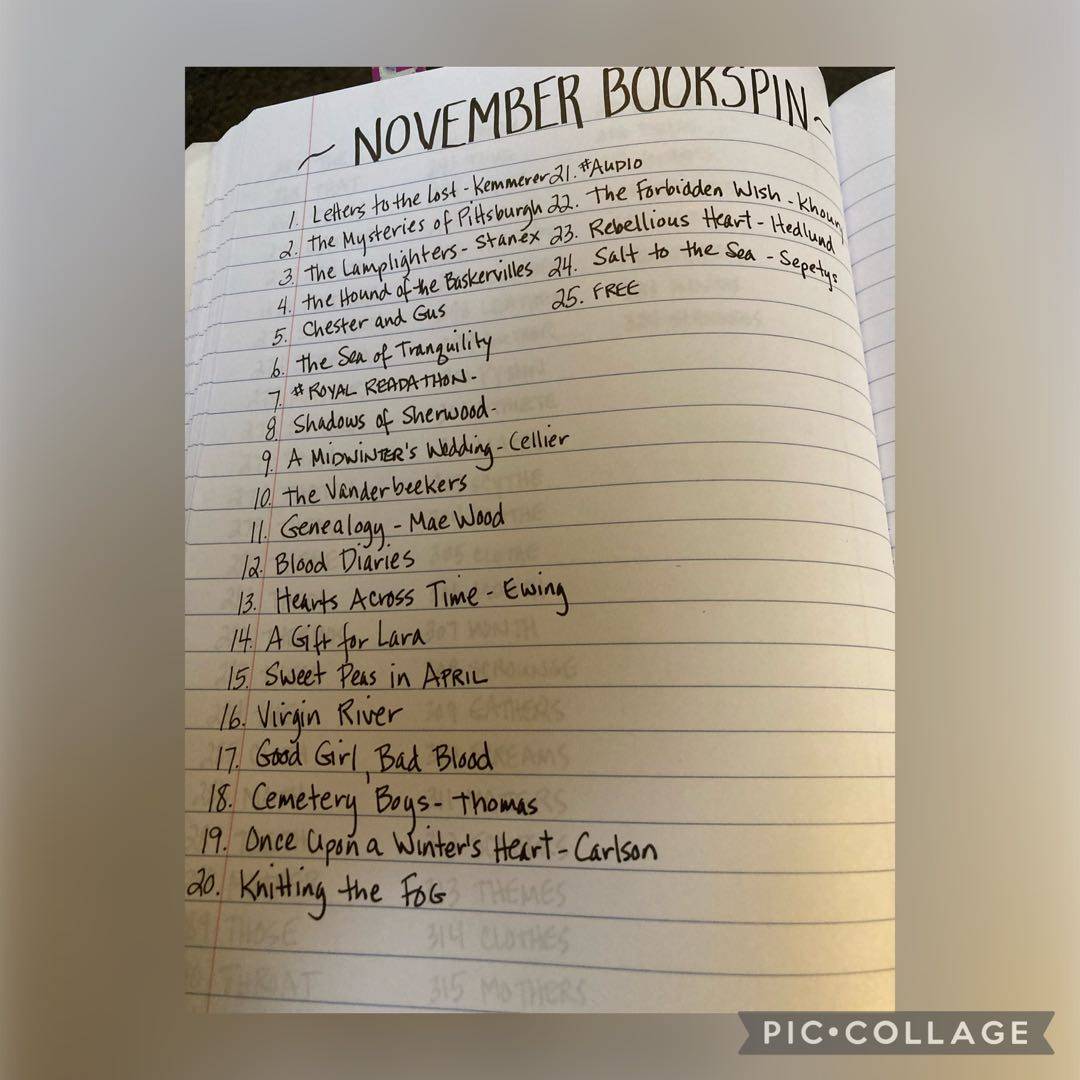 ~ NOVEMBER BOOKSPIN ~
1. Letters to the Lost - Kemmerer
2. The Mysteries of Pittsburgh
3. The Lamplighters - Stanex
4. the Hound of the Baskervilles
5. Chester and Gus
6. the Sea of Tranquility
7. #ROYAL READATHON-
8. Shadows of Sherwood-
9. A MIDWINTER'S Wedding - Cellier
10. the Vanderbeekers
11. Genealogy - Mae Wood
12. Blood Diaries
13. Hearts Across Time - Ewing
14. A Gift for Lara
15. Sweet Peas in APRIL
16. Virgin River
17. Good Girl, Bad Blood
18. Cemetery Boys - Thomas
19. Once Upon a Winter's Heart - Carlson
20. Knitting the FOG
21. #AUDIO
22. The Forbidden Wish - Khoury
23. Rebellious Heart - Hedlund
24. Salt to the Sea - Sepetys
25. FREE
313 THEMES
THOSE
314 CLOTHES
THROAT
315 MOTHERS
PIC•COLLAGE